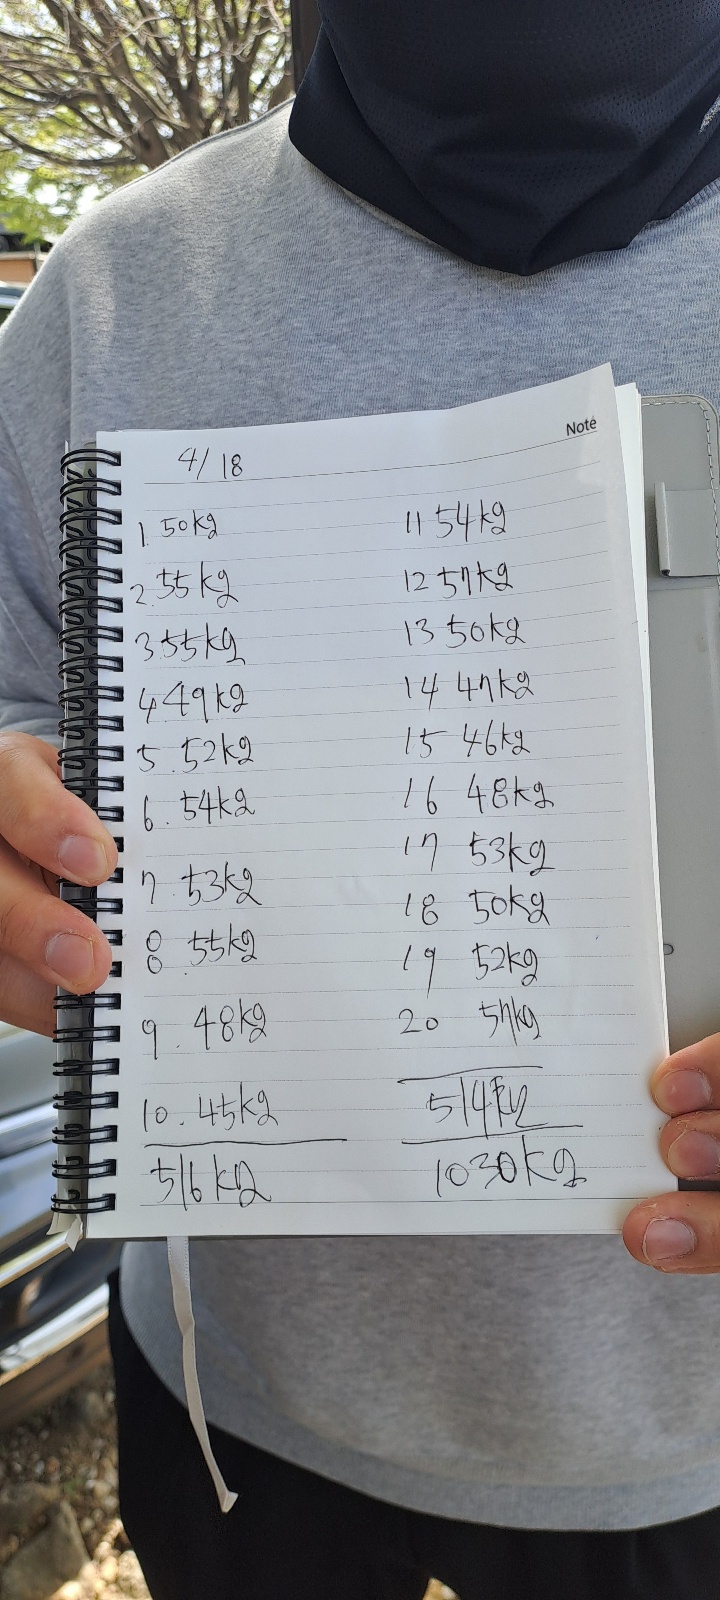 Note
4/18
1. 50kg
2. 55kg
3. 55kg
4. 49kg
5. 52kg
6. 54kg
7. 53kg
8. 55kg
9. 48kg
10. 45kg
516kg
11 54kg
12 57kg
13 50kg
14 47kg
15 46kg
16 48kg
17 53kg
18 50kg
19 52kg
20 57kg
514kg
1030kg